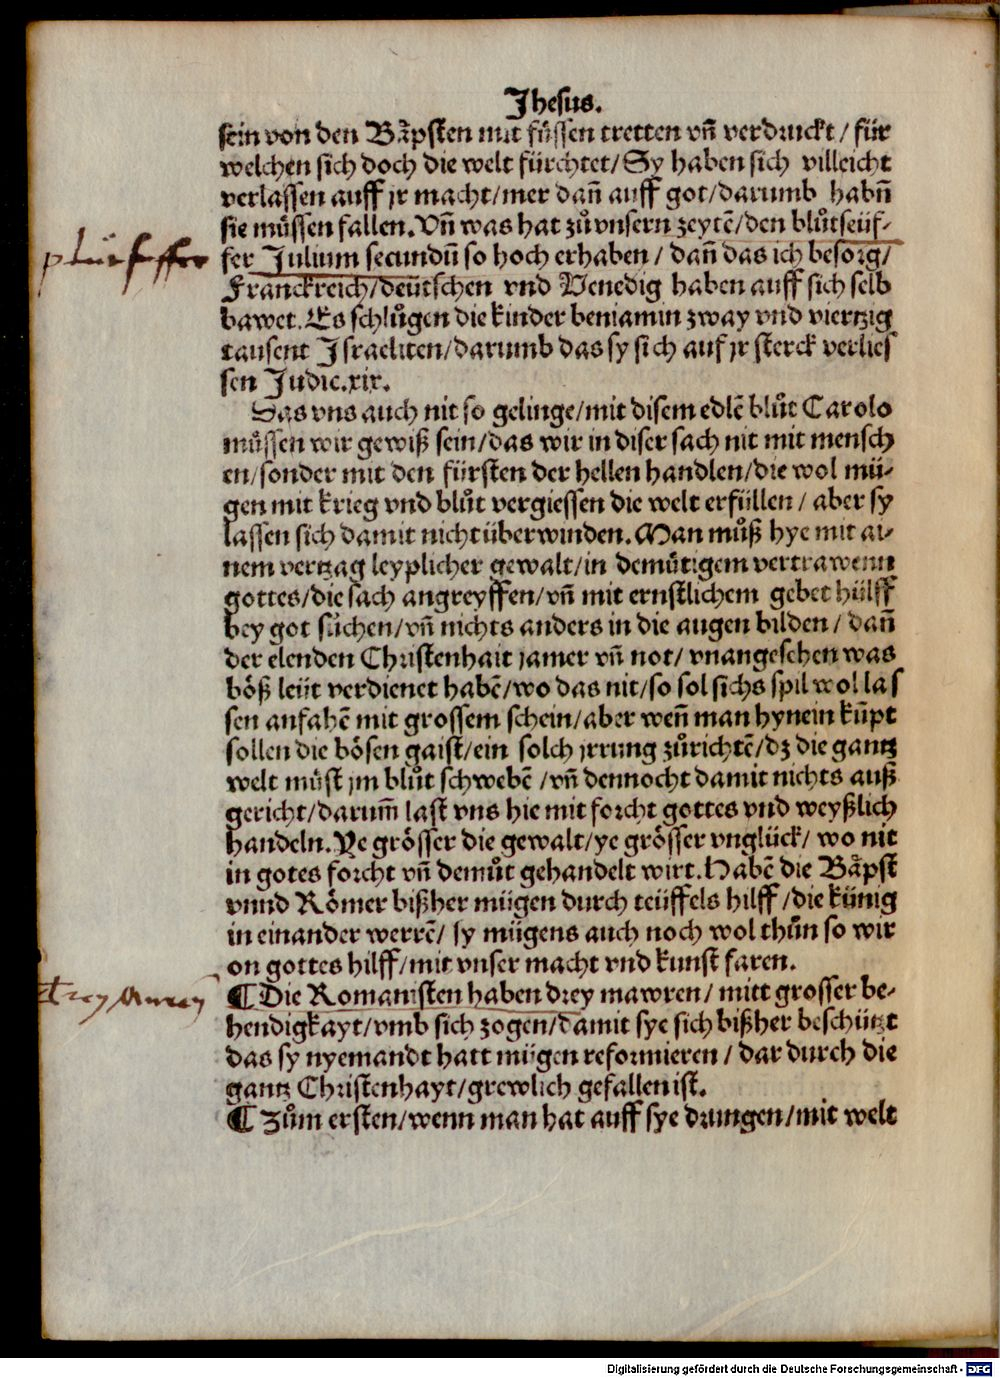 Jhesus.
sein von den Bäpsten mit füssen tretten vñ verdruckt / für
welchen sich doch die welt fürchtet / Sy haben sich villeicht
verlassen auff jr macht / mer dañ auff got / darumb habñ
sie müssen fallen. Vñ was hat zů vnsern zeytē / den blůtseüf-
fer Julium secundũ so hoch erhaben / dañ das ich besorg /
Franckreich / deütschen vnd Venedig haben auff sich selb
bawet. Es schlůgen die kinder beniamin zway vnd viertzig
tausent Israeliten / darumb das sy sich auf jr sterck verlies
sen Judic. xix.
Das vns auch nit so gelinge / mit disem edlē blůt Carolo
müssen wir gewiß sein / das wir in diser sach nit mit mensch
en / sonder mit den fürsten der hellen handlen / die wol mü-
gen mit krieg vnd blůt vergiessen die welt erfüllen / aber sy
lassen sich damit nicht überwinden. Man můß hye mit ai-
nem vertzag leyplicher gewalt / in demütigem vertrawenn
gottes / die sach angreyffen / vñ mit ernstlichem gebet hülff
bey got süchen / vñ nichts anders in die augen bilden / dañ
der elenden Christenhait jamer vñ not / vnangesehen was
böß leüt verdienet habē / wo das nit / so sol sichs spil wol las
sen anfahē mit grossem schein / aber weñ man hynein kũpt
sollen die bösen gaist / ein solch jrrung zůrichtē / dz die gantz
welt müst jm blůt schwebē / vñ dennocht damit nichts auß
gericht / darum̃ last vns hie mit forcht gottes vnd weyßlich
handeln. Ye grösser die gewalt / ye grösser vnglück / wo nit
in gotes forcht vñ demůt gehandelt wirt. Habē die Bäpst
vnnd Römer bißher mügen durch teüffels hilff / die künig
in einander werrē / sy mügens auch noch wol thůn so wir
on gottes hilff / mit vnser macht vnd kunst faren.
¶ Die Romanisten haben drey mawren / mitt grosser be-
hendigkayt / vmb sich zogen / damit sye sich bißher beschützt
das sy nyemandt hatt mügen reformieren / dar durch die
gantz Christenhayt / grewlich gefallen ist.
¶ Zům ersten / wenn man hat auff sye drungen / mit welt
Digitalisierung gefördert durch die Deutsche Forschungsgemeinschaft - DFG